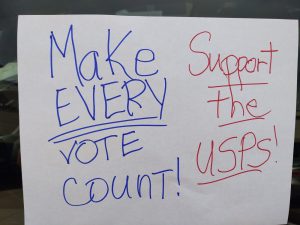 Make
EVERY
VOTE
COUNT!
Support
the
USPS!